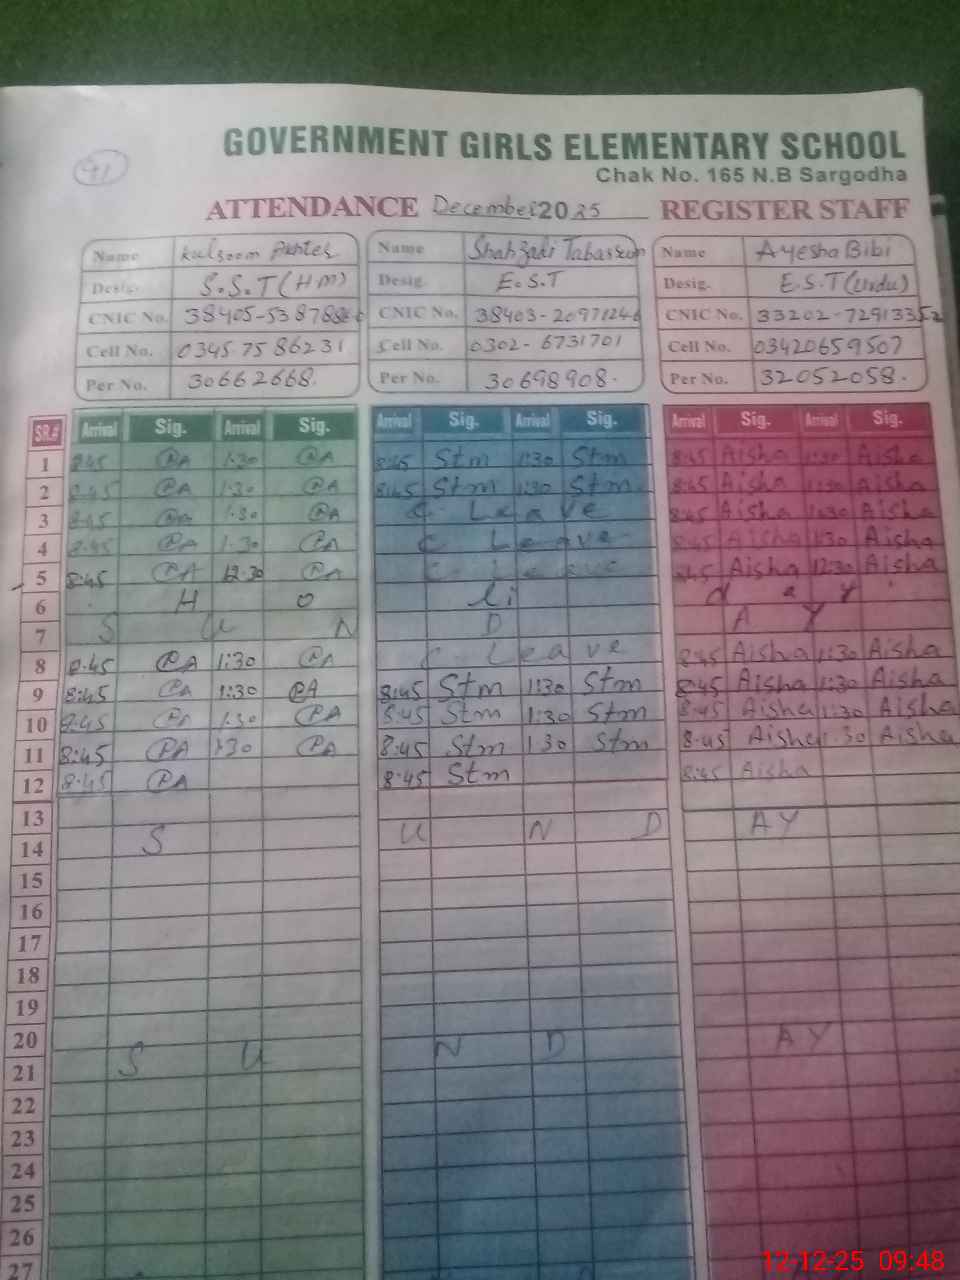 41
GOVERNMENT GIRLS ELEMENTARY SCHOOL
Chak No. 165 N.B Sargodha
ATTENDANCE December 2025 REGISTER STAFF
Name Kulsoom Akhter Name Shahzadi Tabassum Name Ayesha Bibi
Desig. S.S.T (HM) Desig. E.S.T Desig. E.S.T (Urdu)
CNIC No. CNIC No. CNIC No.
Cell No. 0345 7586231 Cell No. 0302-6731701 Cell No. 03420659507
Per No. 30662668. Per No. 30698908. Per No. 32052058.
SR.# Arrival Sig. Arrival Sig. Arrival Sig. Arrival Sig. Arrival Sig. Arrival Sig.
1 8:45 PA 1:30 PA 8:45 Stm 1:30 Stm 8:45 Aisha 1:30 Aisha
2 8:45 PA 1:30 PA 8:45 Stm 1:30 Stm 8:45 Aisha 1:30 Aisha
3 8:45 PA 1:30 PA C. Leave 8:45 Aisha 1:30 Aisha
4 8:45 PA 1:30 PA C Leave 8:45 Aisha 1:30 Aisha
5 8:45 PA 12:30 PA C. Leave 8:45 Aisha 12:30 Aisha
6 H o li d a y
7 S U N D A Y
8 8:45 PA 1:30 PA C. Leave 8:45 Aisha 1:30 Aisha
9 8:45 PA 1:30 PA 8:45 Stm 1:30 Stm 8:45 Aisha 1:30 Aisha
10 8:45 PA 1:30 PA 8:45 Stm 1:30 Stm 8:45 Aisha 1:30 Aisha
11 8:45 PA 1:30 PA 8:45 Stm 1 30 Stm 8:45 Aisha 1.30 Aisha
12 8:45 PA 8:45 Stm 8:45 Aisha
13
14 S U N D AY
15
16
17
18
19
20
21 S U N D AY
22
23
24
25
26
27
12-12-25 09:48